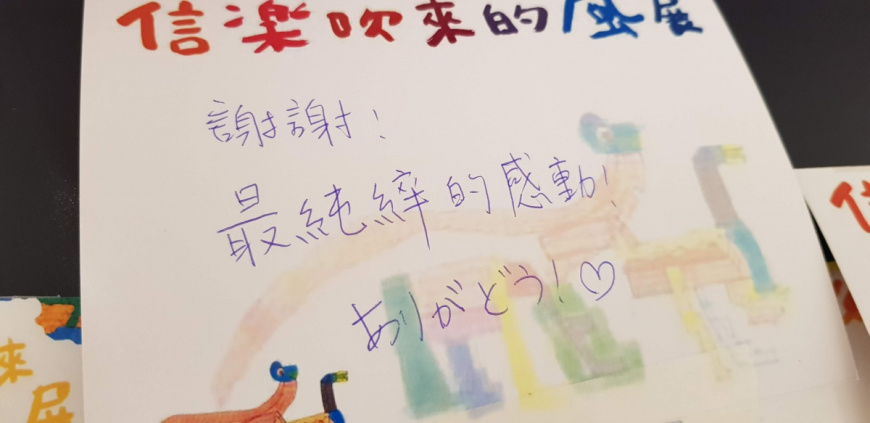 信楽吹來的風展
謝謝!
最純粹的感動!
ありがどう!♡
來
展
信